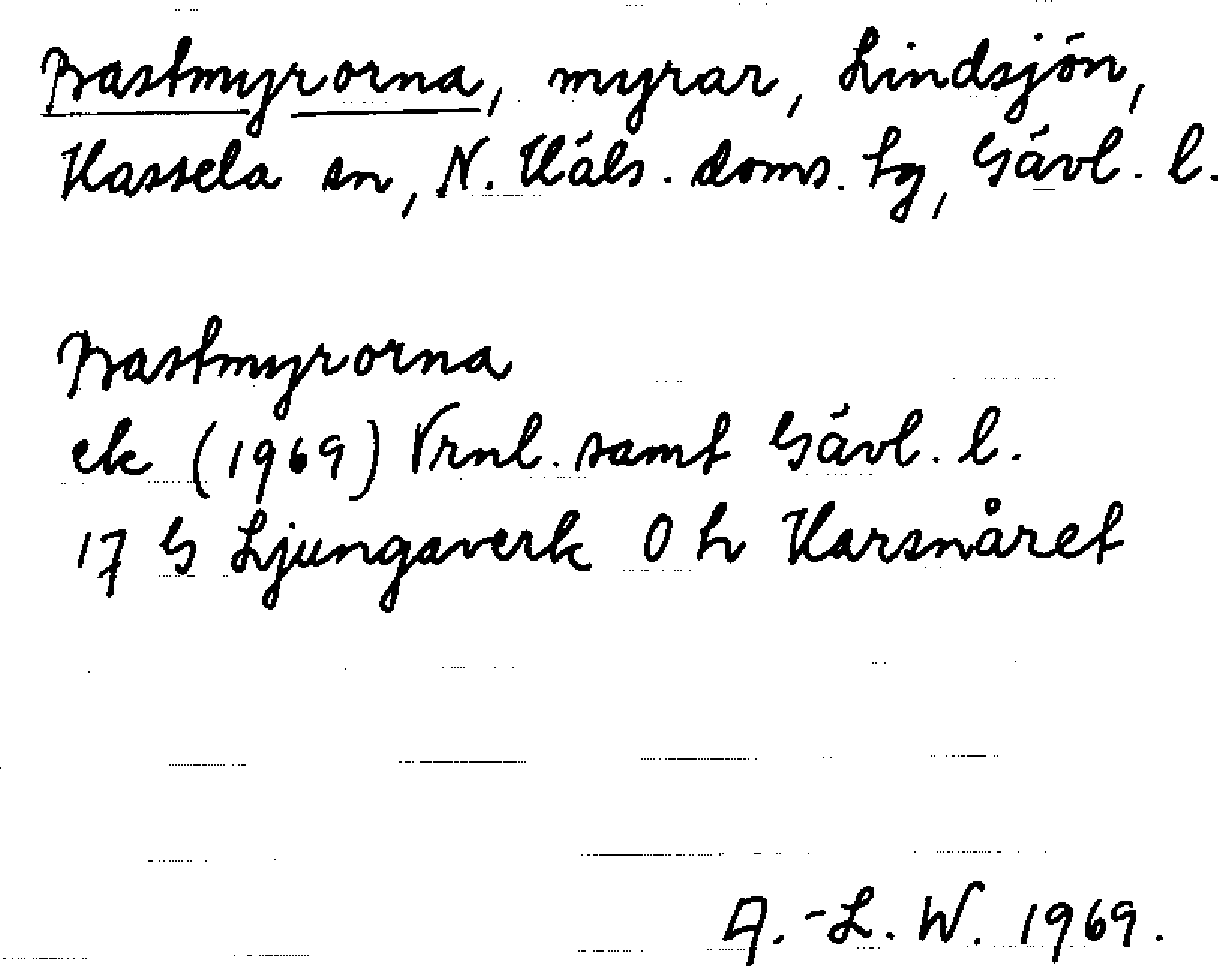 Bastmyrorna, myrar, Lindsjön,
Hassela sn, N. Häls. doms. tg, Gävl. l.
Bastmyrorna
ek (1969) Vrnl. samt Gävl. l.
17 G Ljungaverk 0 h Harsnåret
A.-L. W. 1969.